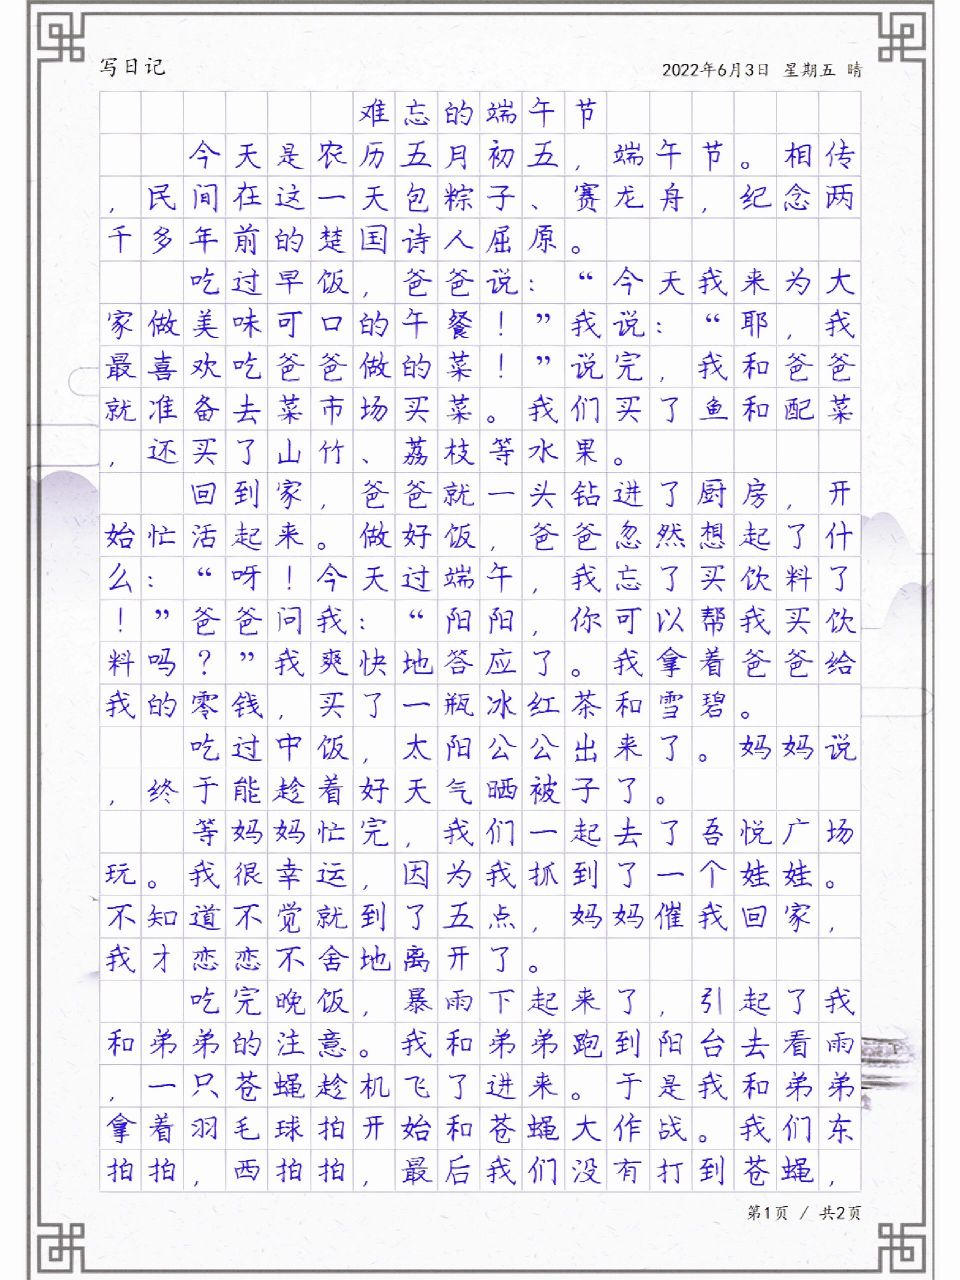 写日记
2022年6月3日 星期五 晴
难忘的端午节
今天是农历五月初五，端午节。相传
，民间在这一天包粽子、赛龙舟，纪念两
千多年前的楚国诗人屈原。
吃过早饭，爸爸说：“今天我来为大
家做美味可口的午餐！”我说：“耶，我
最喜欢吃爸爸做的菜！”说完，我和爸爸
就准备去菜市场买菜。我们买了鱼和配菜
，还买了山竹、荔枝等水果。
回到家，爸爸就一头钻进了厨房，开
始忙活起来。做好饭，爸爸忽然想起了什
么：“呀！今天过端午，我忘了买饮料了
！”爸爸问我：“阳阳，你可以帮我买饮
料吗？”我爽快地答应了。我拿着爸爸给
我的零钱，买了一瓶冰红茶和雪碧。
吃过中饭，太阳公公出来了。妈妈说
，终于能趁着好天气晒被子了。
等妈妈忙完，我们一起去了吾悦广场
玩。我很幸运，因为我抓到了一个娃娃。
不知道不觉就到了五点，妈妈催我回家，
我才恋恋不舍地离开了。
吃完晚饭，暴雨下起来了，引起了我
和弟弟的注意。我和弟弟跑到阳台去看雨
，一只苍蝇趁机飞了进来。于是我和弟弟
拿着羽毛球拍开始和苍蝇大作战。我们东
拍拍，西拍拍，最后我们没有打到苍蝇，
第1页 / 共2页